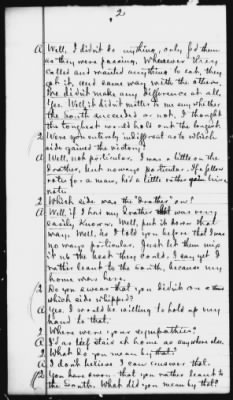 2
A Well, I didn't do anything, only fed them
as they were passing. Whenever they
called and wanted anything to eat, they
got it, and same way with the others.
We didn't make any difference at all.
Yes. Well it didn't matter to me any whether
the South succeeded or not. I thought
the toughest would hold out the longest.
Q Were you entirely indifferent as to which
side gained the victory?
A Well, not particular. I was a little on the
brother, but noways particular. If a fellow
note for a man, he'd a little rather
note.
Q Which side was the "brother" on?
A Well, if I had my brother it was very
easily known. Well, put it down that
way. Well, as I told you before that I was
no ways particular. Just let them mix
it up the best they could. I say yet I
rather leant to the South, because my
home was here.
Q Do you swear that you didn't care
which side whipped?
A Yes. I would be willing to hold up my
hand to that.
Q Where were your sympathies?
A I'd as lief staid at home as anywhere else.
Q What do you mean by that?
A I don't believe I can answer that.
Q You have sworn that you rather leant to
the South. What did you mean by that?